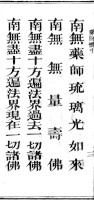 南無藥師琉璃光如來
南無無量壽佛
南無盡十方遍法界過去一切諸佛
南無盡十方遍法界現在一切諸佛